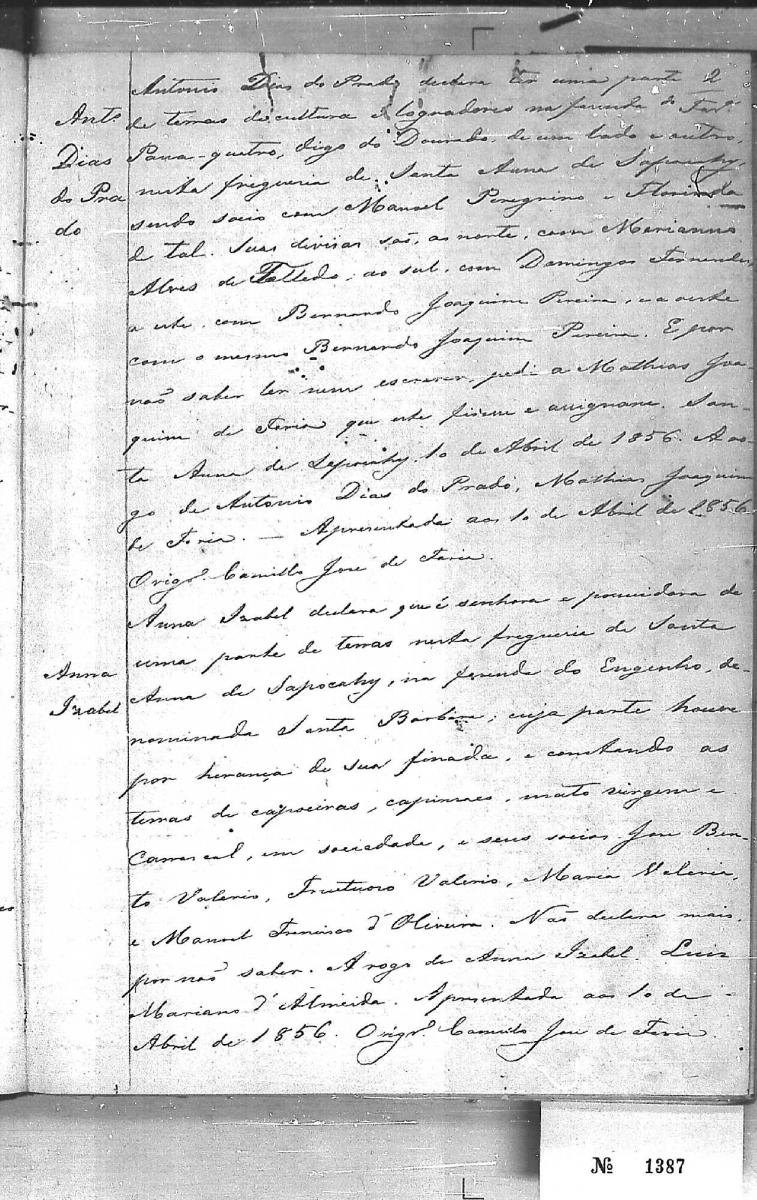 Antonio Dias do Prado declara ter uma parte 2
de terras de cultura e logradores na fazenda do
Para-quetro, digo do Dourado, de um lado e outro,
nesta freguezia de Santa Anna de Sapocahy,
sendo socio com Manoel Peregrino e Florinda
de tal. Suas divisas são, ao norte, com Marianno
Alves de Tolledo, ao sul, com Domingos Fernandes,
a este, com Bernardo Joaquim Pereira, e a oeste
com o mesmo Bernardo Joaquim Pereira. E por
não saber ler nem escrever, pedi a Mathias Joa-
quim de Faria que este fizesse e assignasse. San-
ta Anna de Sapocahy 10 de Abril de 1856. A ro-
go de Antonio Dias do Prado, Mathias Joaquim
de Faria. — Apresentada aos 10 de Abril de 1856
Origr. Camillo José de Faria.
Antº
Dias
do Pra
do
Anna Izabel declara que é senhora e possuidora de
uma parte de terras nesta freguezia de Santa
Anna de Sapocahy, na fazenda do Engenho, de-
nominada Santa Barbara; cuja parte houve
por herança de sua finada, e constando as
terras de capoeiras, capinzaes, mato virgem e
Carrascal, em sociedade, e seus socios José Ben-
to Valerio, Fructuoso Valerio, Maria Valeria,
e Manoel Francisco d'Oliveira. Não declara mais,
por não saber. A rogo de Anna Izabel. Luiz
Mariano d'Almeida. Apresentada aos 10 de
Abril de 1856. Origr. Camillo José de Faria.
Anna
Izabel
Nº 1387